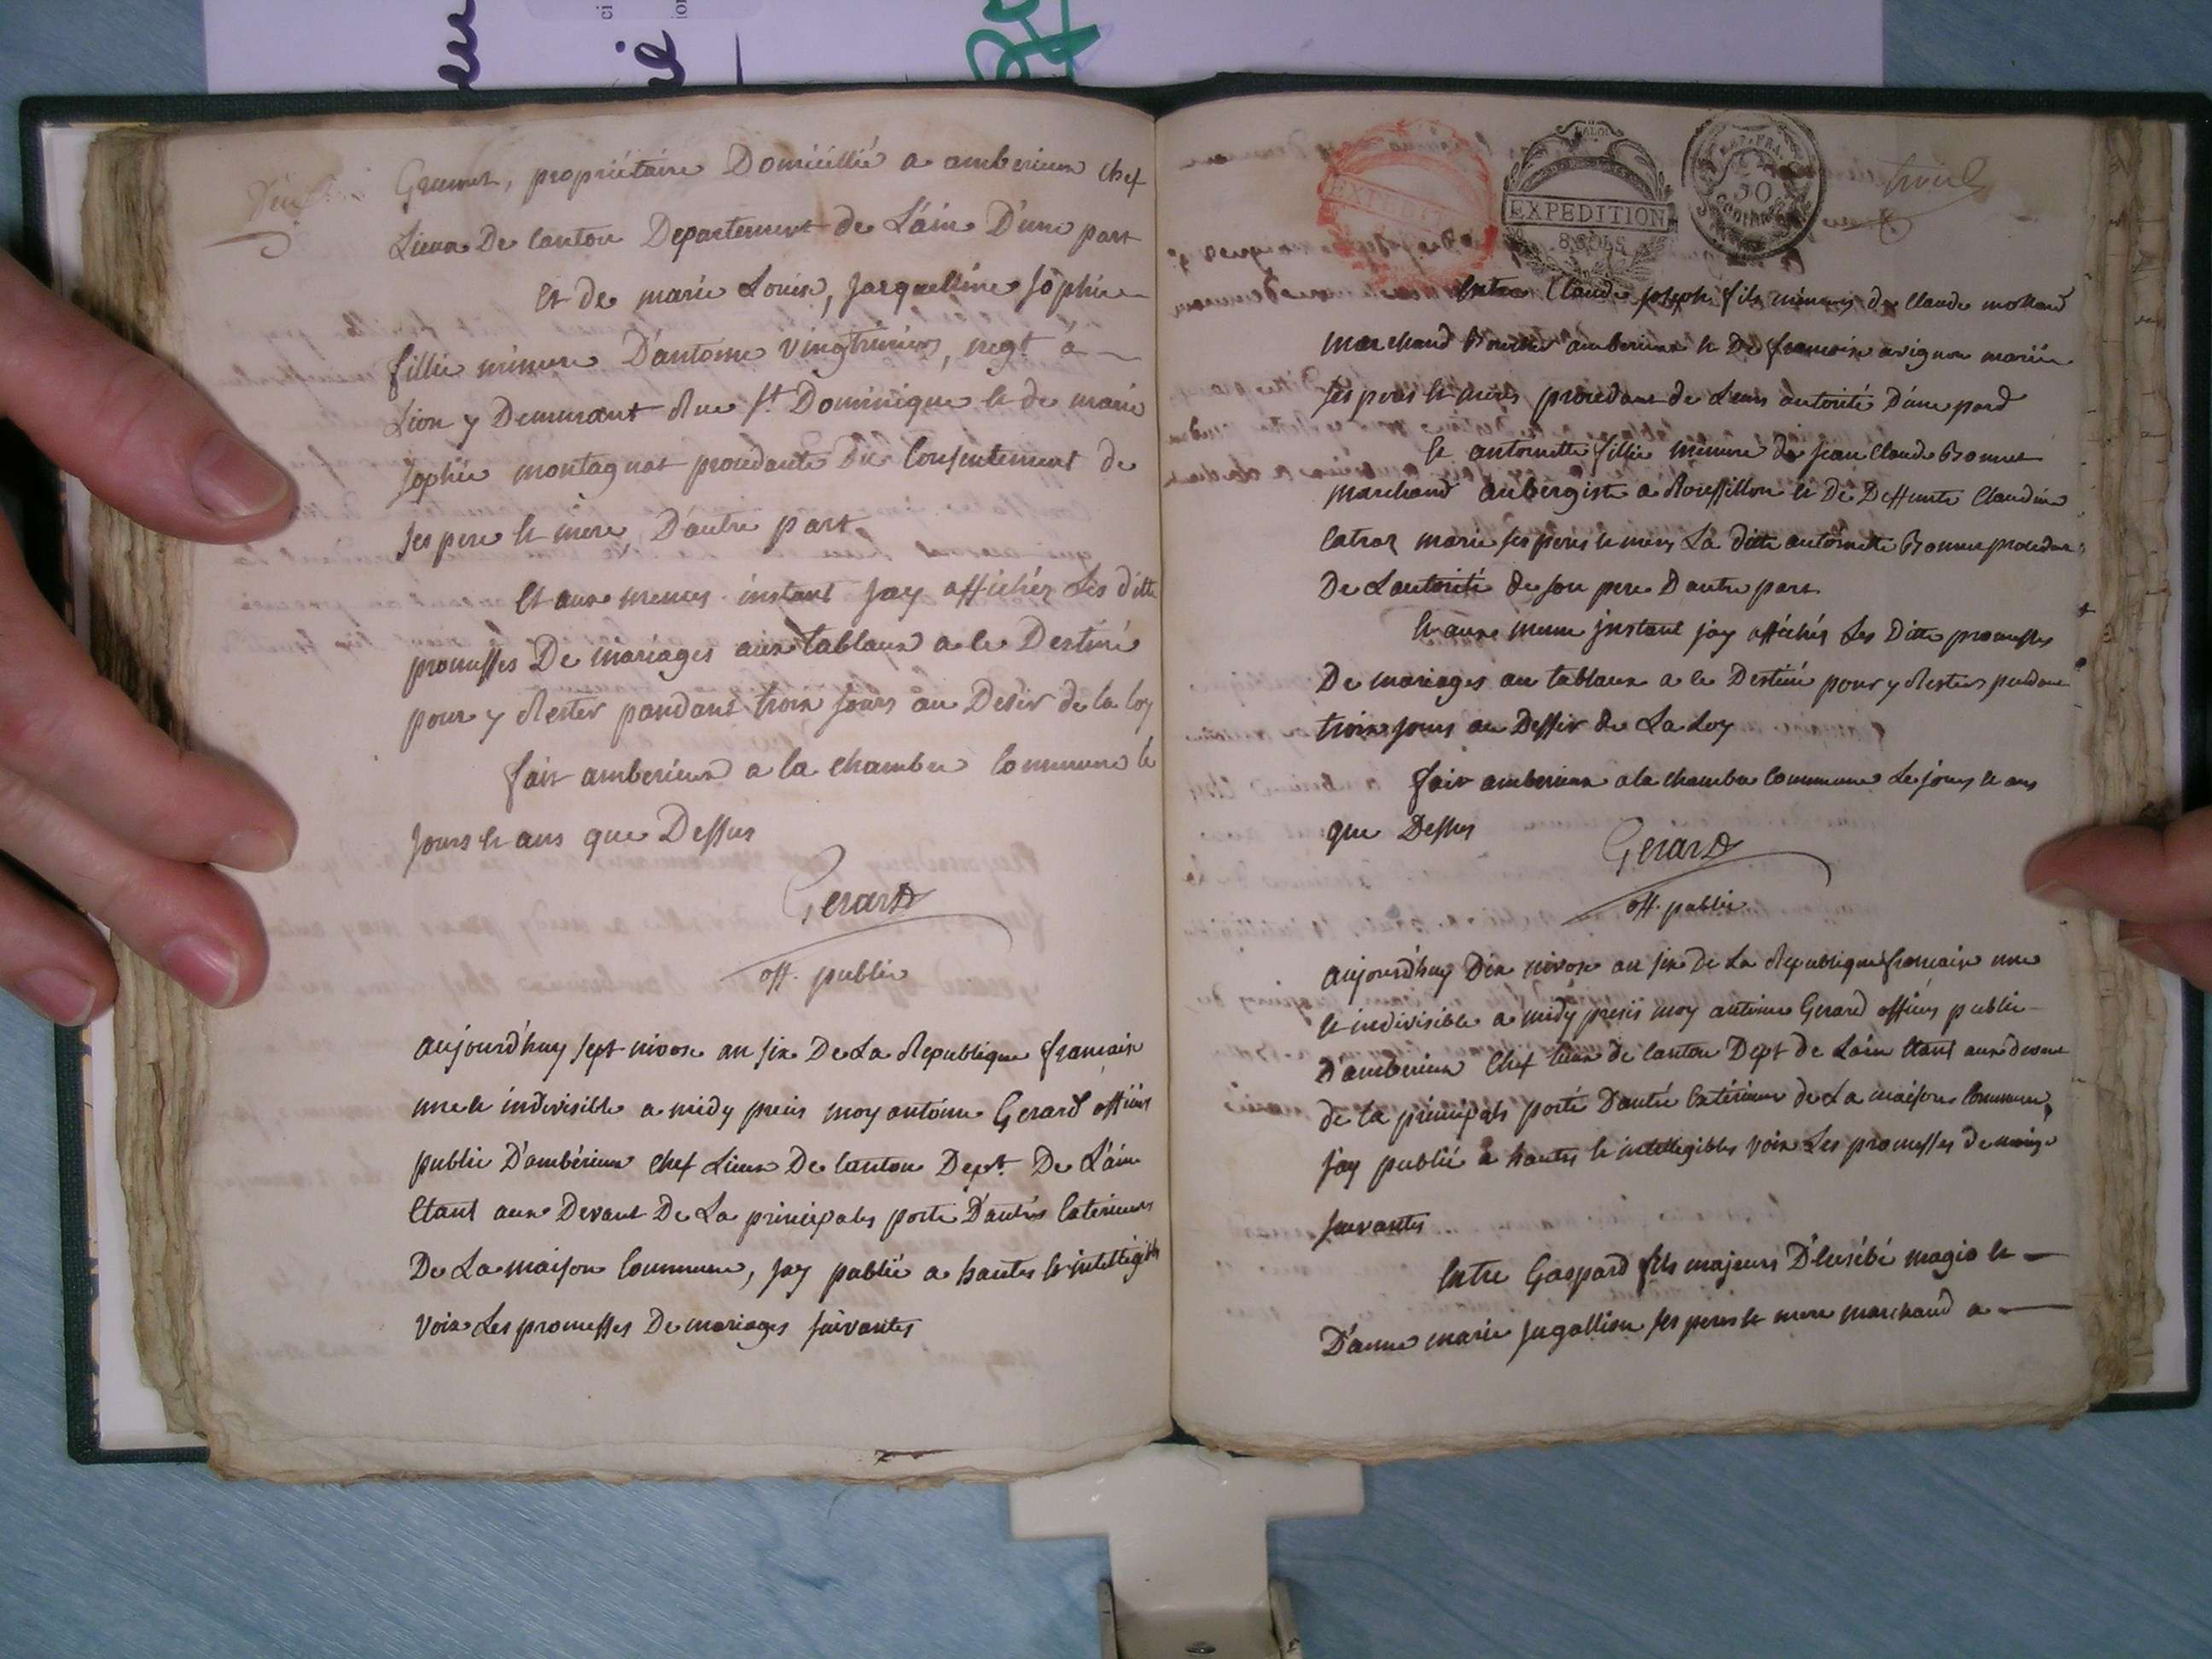 Grumet, propriétaire Domicillié a amberieux chef
Lieux De Canton Departement de L'ain D'une part
et de marie Louise, Jacquelline Sophie
fillie mineure D'antoine Vingtrinier, negt. à
Lion y Demeurant Rue St. Dominique et de marie
Sophie montagnat procedante Du Consentement de
ses pere et mere, D'autre part
Et aux memes instant Jay affichéz Les ditte
promesses De mariages aux tablaux a ce Destiné
pour y Rester pandant troix Jours au Desir de la loy
fait amberieux a la chambre Commune le
Jours et ans que Dessus
Gerard
off. public
aujourd'huy sept nivose an six De La Republique francaise
une et indivisible a midy precis moy antoine Gerard officier
public D'ambérieux chef Lieux De Canton Dept. De L'ain
Etant aux Devant De La principales porte D'autré Exterieurs
De La maison Commune, Jay publié a hautes et intelligibles
voix Les promesses De mariages suivantes
EXPEDITION
EXPEDITION
8 SOLS
REP. FRA.
50
Entre Claude joseph fils mineurs de Claude mollard
marchand amberieux et De francoise avignon mariée
ses peres et meres procedant de Leurs autorité D'une pard
Et antoinette fillie mineure de jean Claude Bonnet
marchand aubergiste a Roussillon et De Deffunte Claudine
marie ses peres et meres La ditte antoinette Bonnet procedant
De L'autorité de son pere D'autre part
Et aux meme jnstant jay affichés Les Ditte promesses
De mariages au tablaux a ce Destiné pour y Rester pendant
troix jours au Dessir de La Loy
fait amberieux a la chambre Commune Le jours et ans
que Dessus
Gerard
off. public
aujourd'huy Dix nivose an six De La Republique francaise une
et indivisible a midy precis moy antoine Gerard officiers public
D'amberieux Chef lieux de Canton Dept de Lain Etant aux devant
de la principale porte D'autré Extérieurs de La maison Commune,
jay publié a hautes et intelligibles voix Les promesses de mariage
suivantes
Entre Gaspard fils majeurs D'Eusébé magio et
D'anne marie Jugallion ses peres et mere marchand a